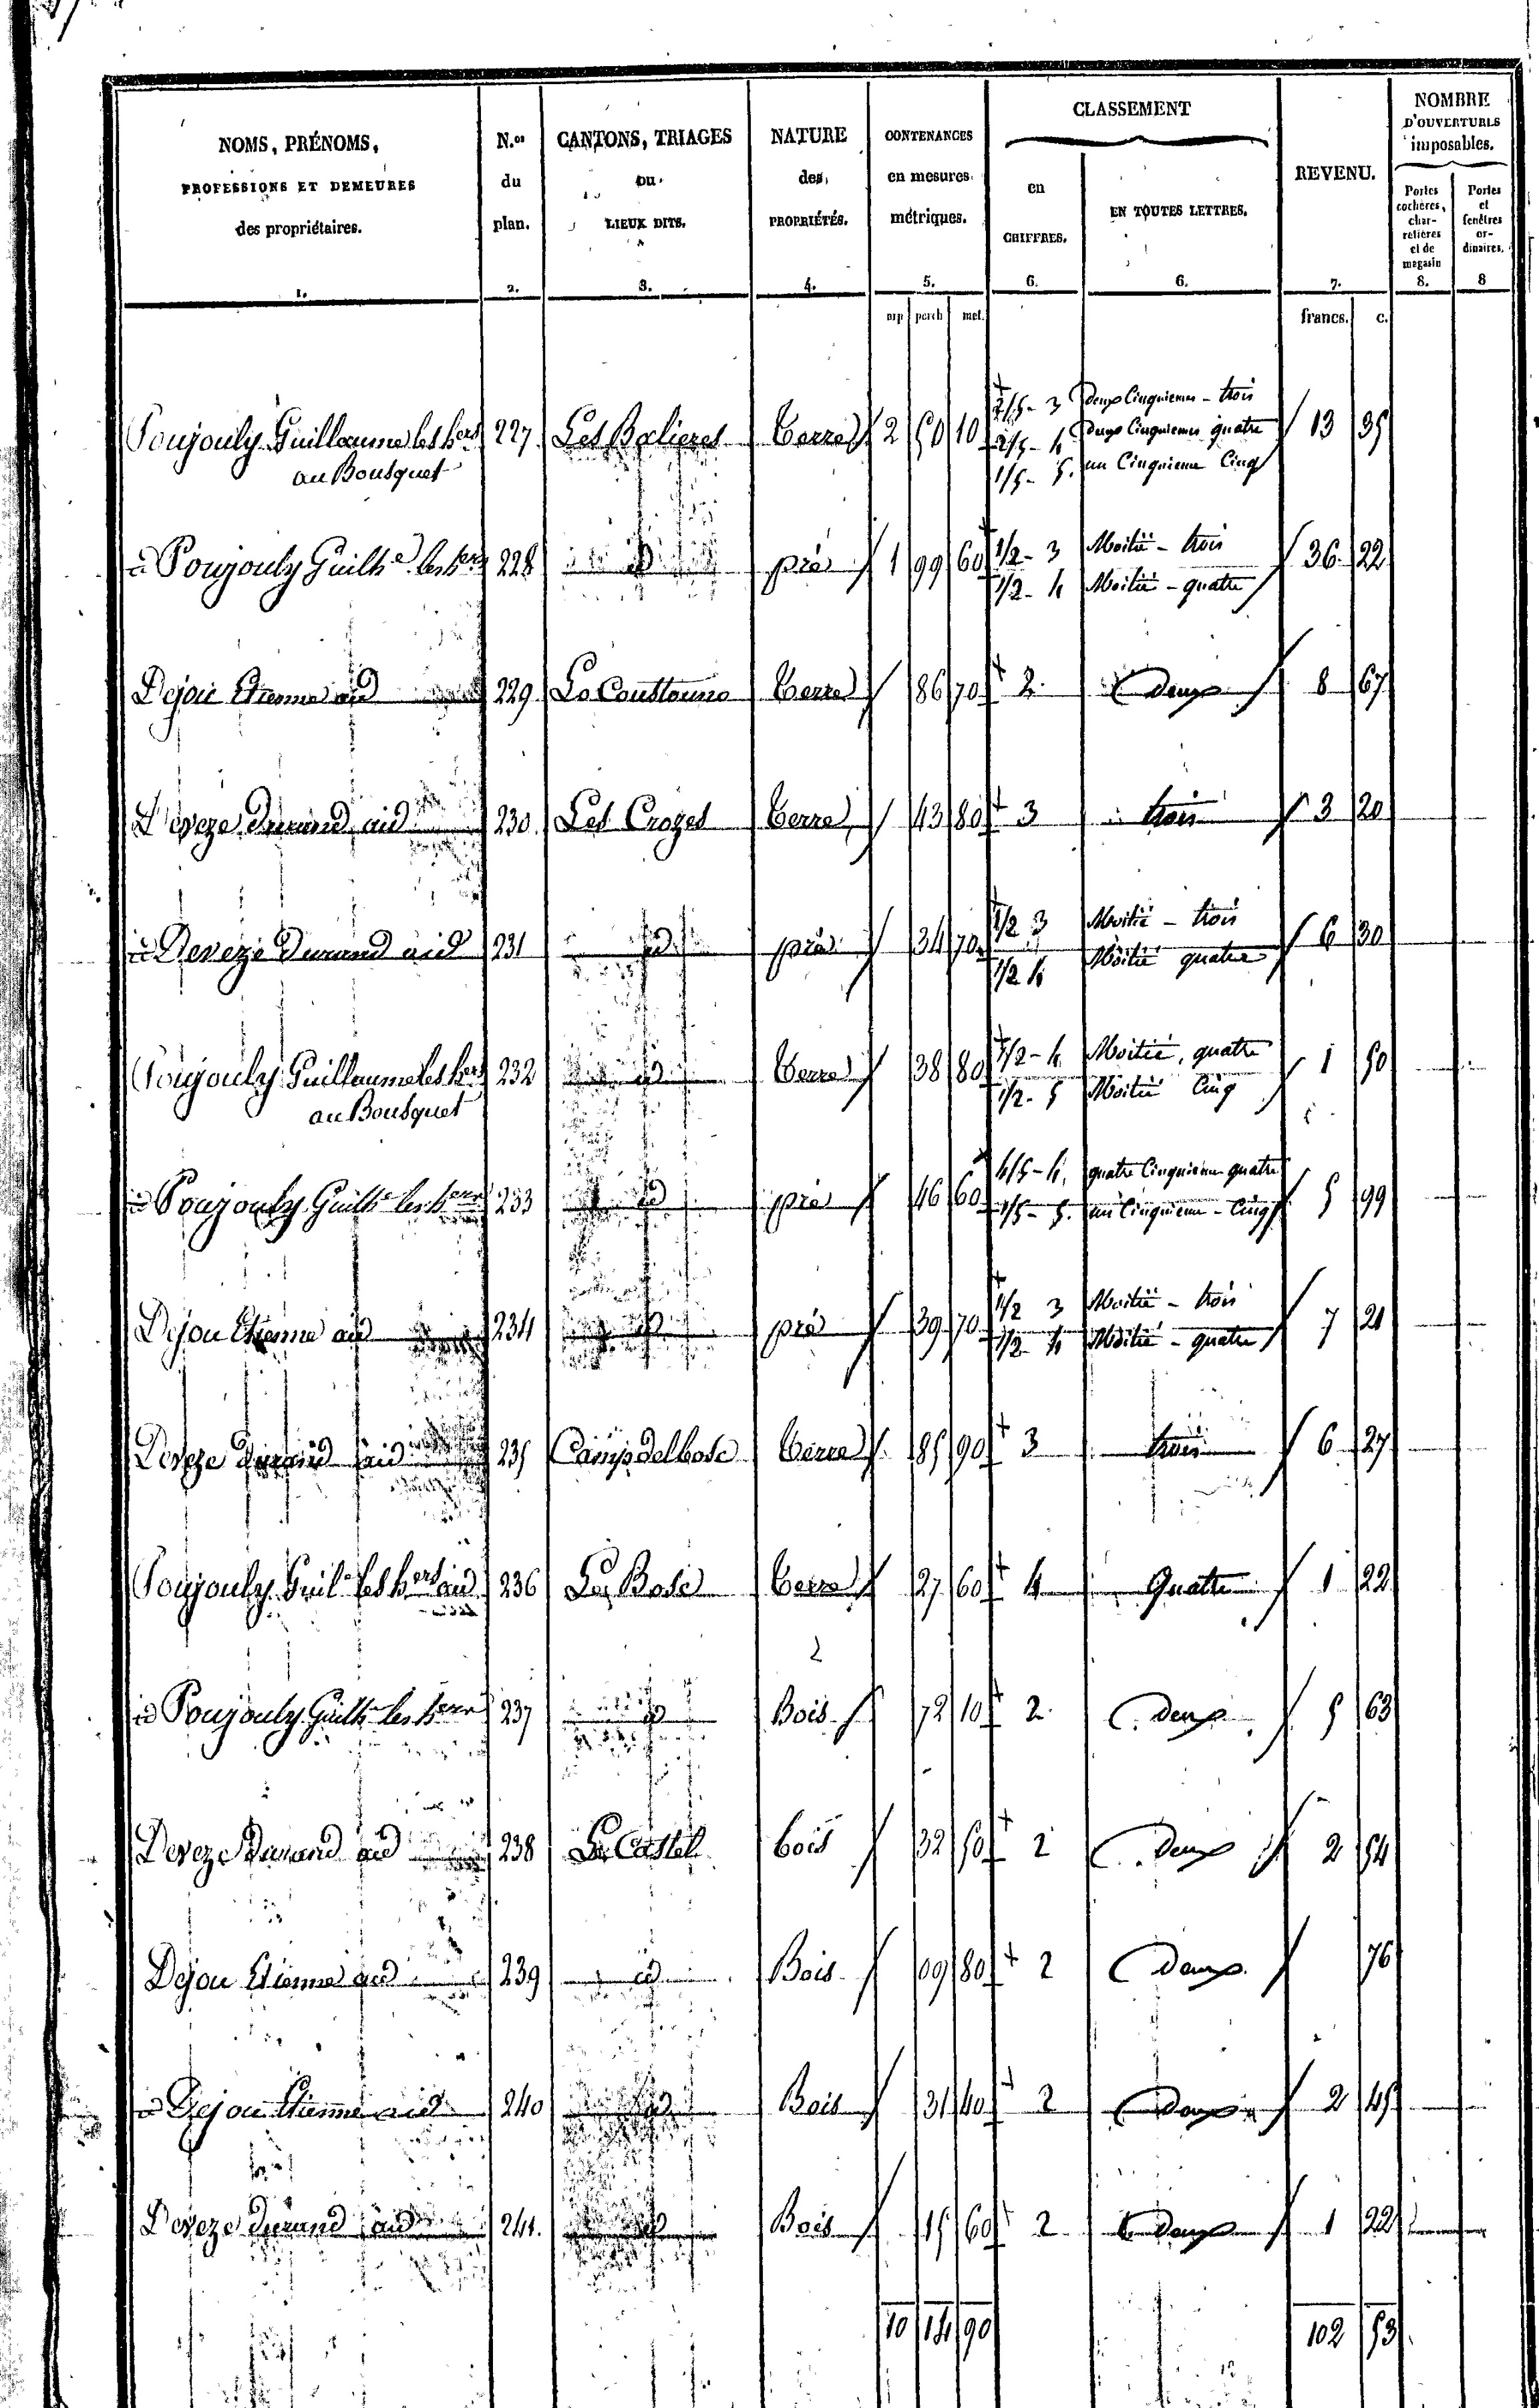 NOMS, PRÉNOMS, PROFESSIONS ET DEMEURES des propriétaires. 1.
N.os du plan. 2.
CANTONS, TRIAGES ou LIEUX DITS. 3.
NATURE des PROPRIÉTÉS. 4.
CONTENANCES en mesures métriques. 5.
CLASSEMENT
en CHIFFRES. 6.
EN TOUTES LETTRES. 6.
REVENU. 7.
NOMBRE D'OUVERTURES imposables.
Portes cochères, charretières et de magasin 8.
Portes et fenêtres ordinaires. 8
arp perch met. francs. c.
Poujouly Guillaume les hers 227 Les Balieres Terre 2 50 10 2/5 - 3 Deux Cinquiemes - trois 13 35
au Bousquet 2/5 - 4 Deux Cinquiemes quatre
1/5 - 5. un Cinquieme Cinq
Poujouly Guilhe les hers 228 id pré 1 99 60 1/2 - 3 Moitié - trois 36 22
1/2 - 4 Moitié - quatre
Dejou Etienne aud 229 La Coustouno Terre 86 70 2. Deux 8 67
Deveze Durand aud 230. Les Crozes Terre 43 80 3 trois 3 20
Deveze Durand aud 231 id pré 34 70 1/2 3 Moitié - trois 6 30
1/2 4 Moitié quatre
Poujouly Guillaume les hers 232 id Terre 38 80 1/2 - 4 Moitié, quatre 1 50
au Bousquet 1/2 - 5 Moitié Cinq
Poujouly Guilhe les hers 233 id pré 46 60 4/5 - 4. quatre Cinquieme quatre 5 99
1/5 - 5. un Cinquieme - Cinq
Dejou Etienne aud 234 id pré 39 70 1/2 3 Moitié - trois 7 21
1/2 4 Moitié - quatre
Deveze Durand aud 235 Camp del bosc Terre 85 90 3 trois 6 27
Poujouly Guile les hers aud 236 Le Bosc Terre 27 60 4 Quatre 1 22
Poujouly Guilhe les hers 237 id Bois 72 10 2. Deux 5 63
Deveze Durand aud 238 Le Castel bois 32 50 2 Deux 2 54
Dejou Etienne aud 239 id Bois 09 80 2 Deux 76
Dejou Etienne aud 240 id Bois 31 40 2 Deux 2 45
Deveze Durand aud 241. id Bois 15 60 2 Deux 1 22
10 14 90 102 53